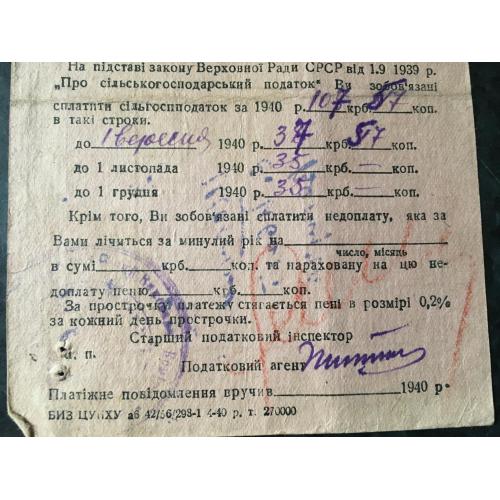 На підставі закону Верховної Ради СРСР від 1.9 1939 р.
„Про сільськогосподарський податок" Ви зобов'язані
сплатити сільгоспподаток за 1940 р. 107 крб. 57 коп.
в такі строки.
до 1 вересня 1940 р. 37 крб. 57 коп.
до 1 листопада 1940 р. 35 крб. — коп.
до 1 грудня 1940 р. 35 крб. — коп.
Крім того, Ви зобов'язані сплатити недоплату, яка за
Вами лічиться за минулий рік на
число, місяць
в сумі крб. коп. та нараховану на цю не-
доплату пеню крб. коп.
За прострочку платежу стягається пені в розмірі 0,2%
за кожний день прострочки.
Старший податковий інспектор
п.
Податковий агент
Платіжне повідомлення вручив 1940 р.
БИЗ ЦУНХУ аб 42/56/298-1 4-40 р. т. 270000